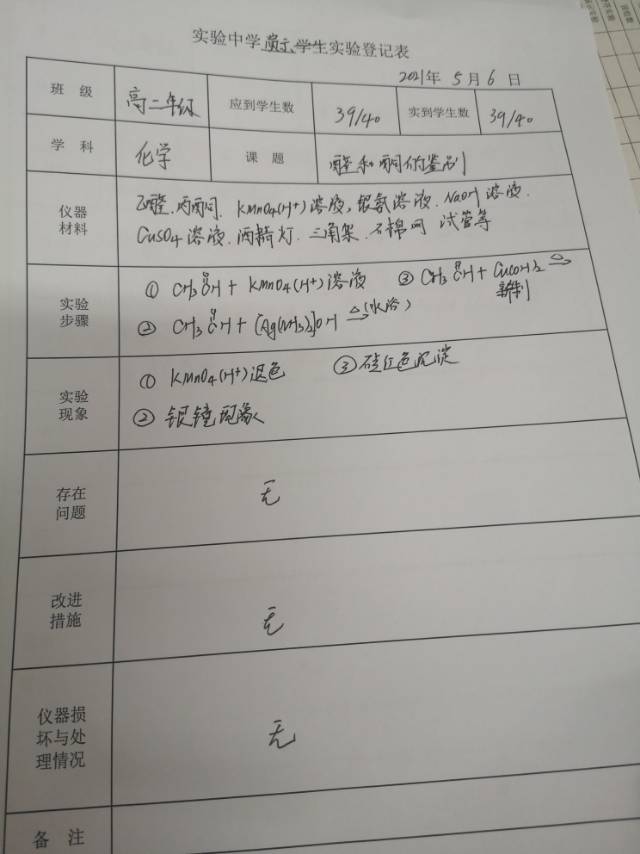 实验中学演示、学生实验登记表
2021年 5月 6日
班级 高二年级 应到学生数 39/40 实到学生数 39/40
学科 化学 课题 醛和酮的鉴别
仪器材料
乙醛、丙酮、KMnO4(H+)溶液, 银氨溶液、NaOH溶液、
CuSO4溶液、酒精灯、三角架、石棉网 试管等
实验步骤
① CH3CH + KMnO4(H+)溶液 ③ CH3CH + Cu(OH)2 △
O O 新制
② CH3CH + [Ag(NH3)2]OH △(水浴)
O
实验现象
① KMnO4(H+)退色 ③ 砖红色沉淀
② 银镜现象
存在问题 无
改进措施 无
仪器损坏与处理情况 无
备注